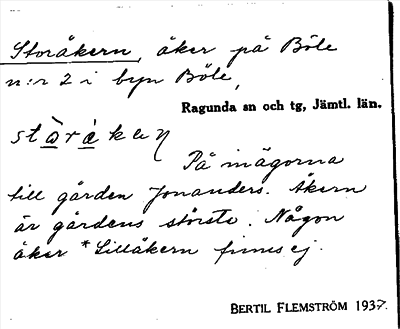 Storåkern, åker på Böle
n:r 2 i byn Böle,
Ragunda sn och tg, Jämtl. län.
På inägorna
till gården Jonanders. Åkern
är gårdens största. Någon
åker *Lillåkern finns ej.
BERTIL FLEMSTRÖM 1937.